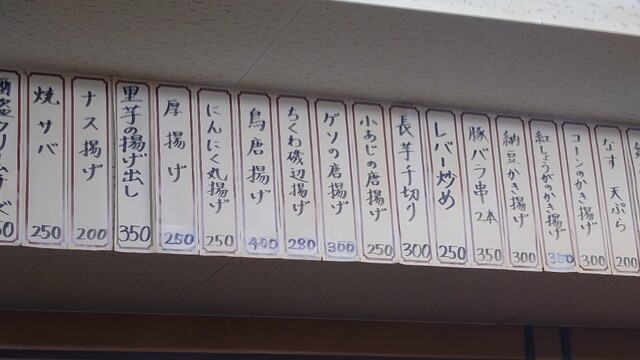 焼サバ
250
ナス揚げ
200
里芋の揚げ出し
350
厚揚げ
250
にんにく丸揚げ
250
鳥唐揚げ
400
ちくわ磯辺揚げ
280
ゲソの唐揚げ
300
小あじの唐揚げ
250
長芋千切り
300
レバー炒め
250
豚バラ串2本
350
納豆かき揚げ
300
紅しょうがのかき揚げ
350
コーンのかき揚げ
300
なす 天ぷら
200